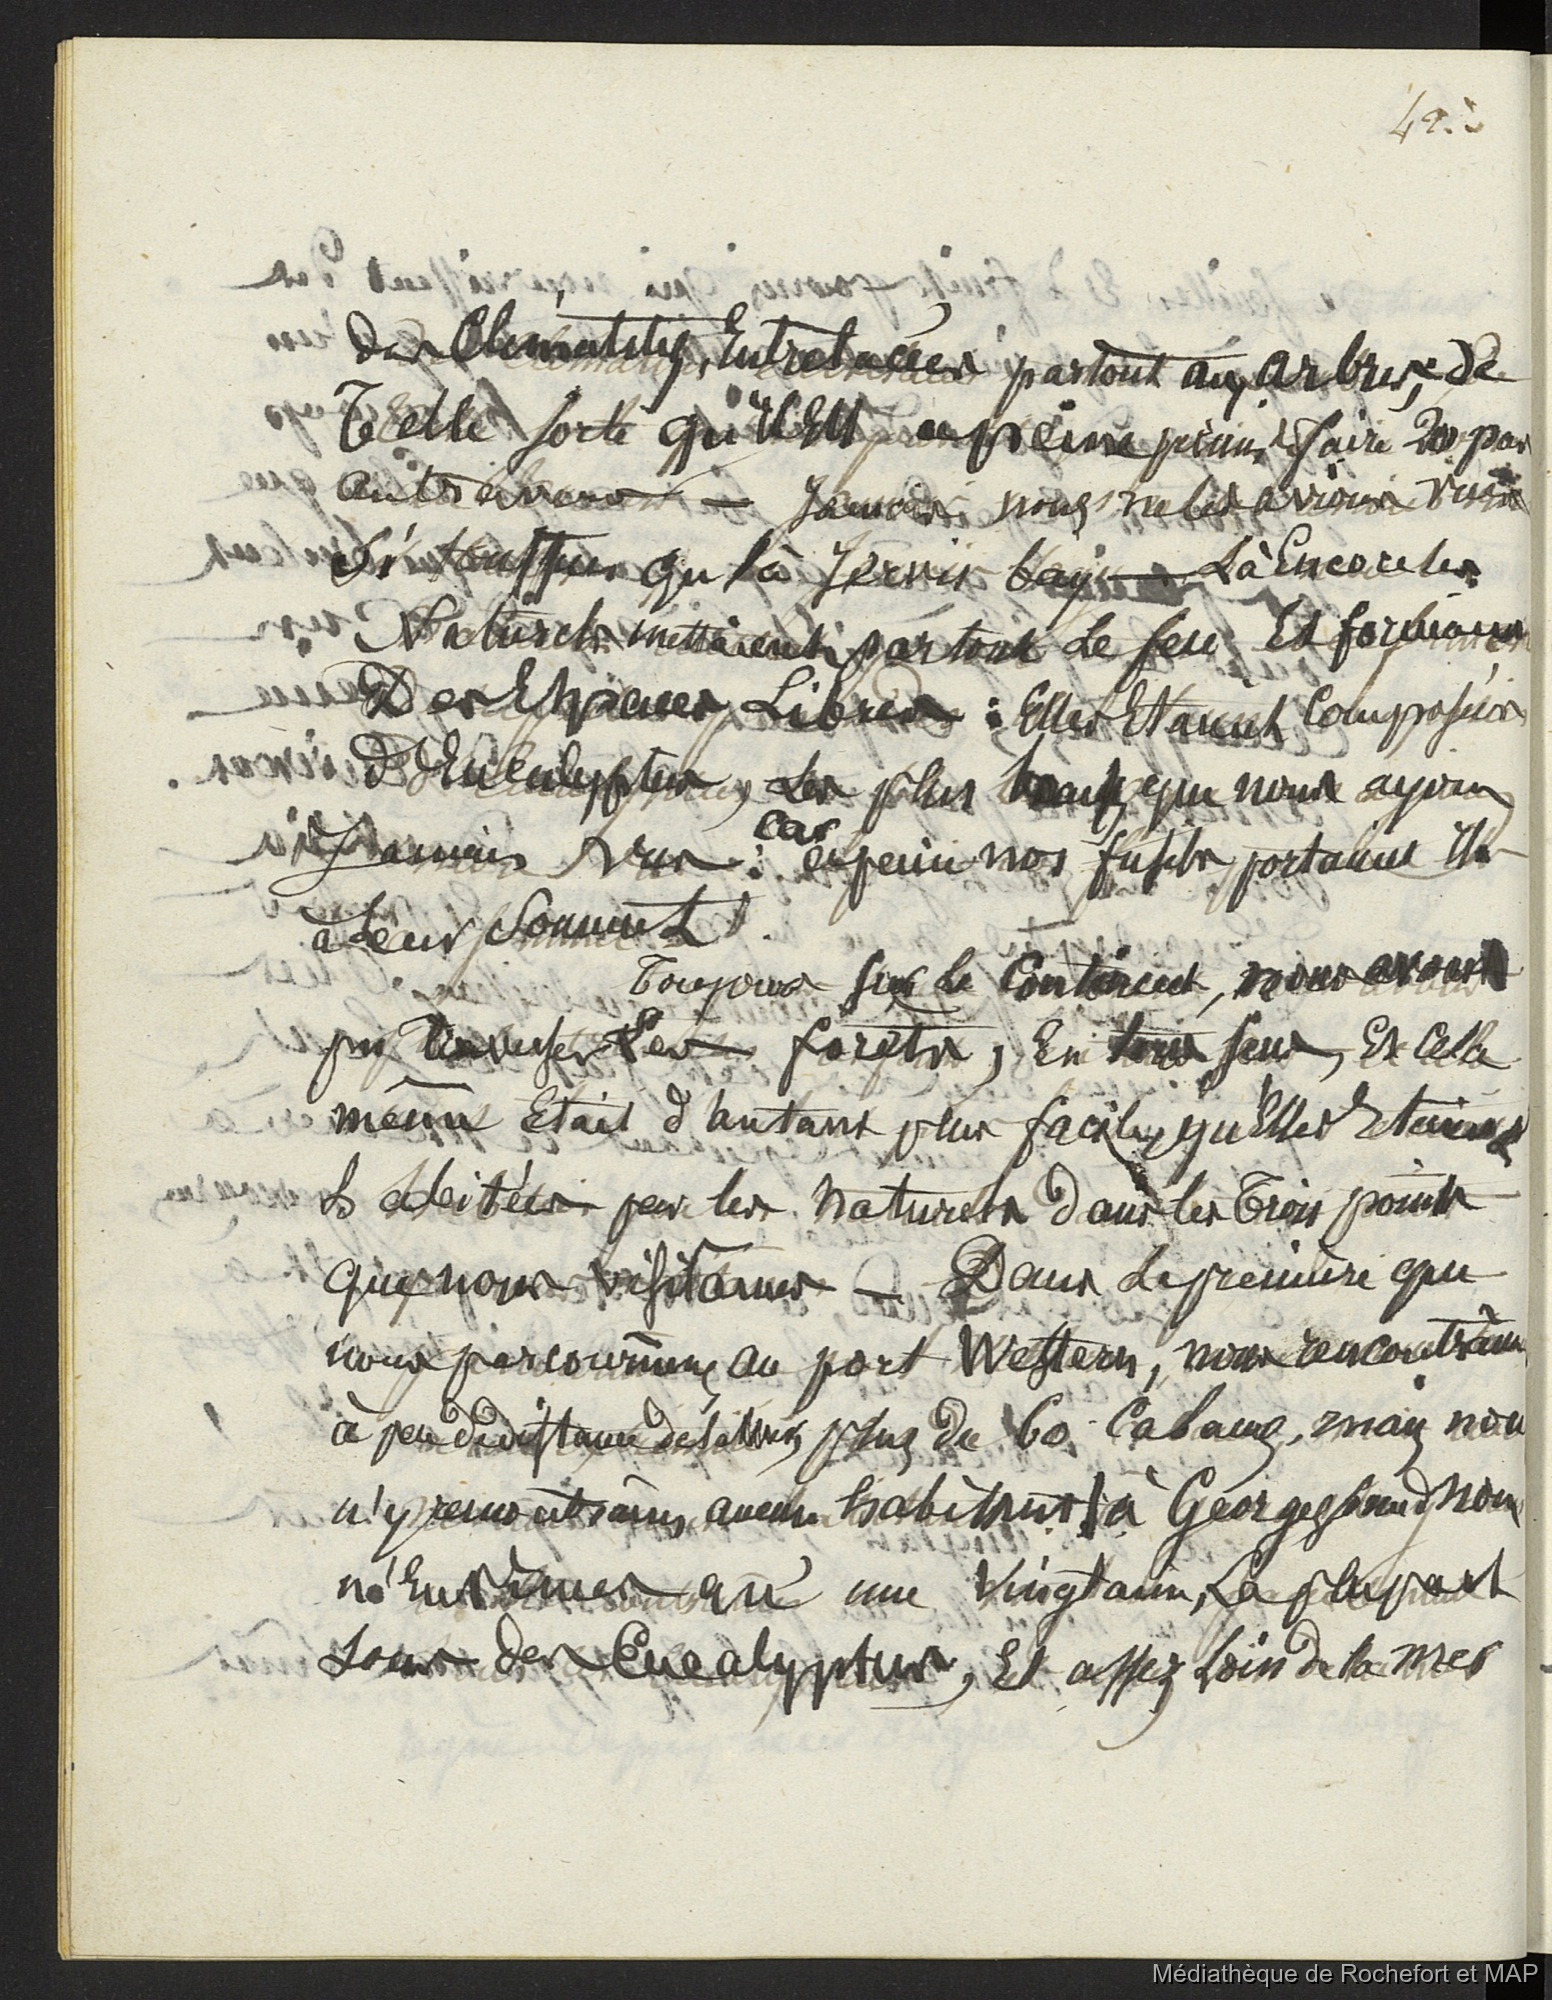 des Clématites, Entrelacées partout aux arbres, de
Telle sorte qu'il Est a peine permis de faire 20 pas
autravers — Jamais nous ne les avions vues
si touffues qu'à Jervis bay — Là Encore les
Naturels mettaient partout Le feu Et formaient
Des Espaces Libres : Elles Etaient Composées
D'Eucalyptus, Les plus beaux que nous ayions
Jamais Vus : car a peine nos fusils portaient ils
à Leur Sommet.
Toujours sur le Continent, nous avons
pu Traverser Les forêts, En tous sens, Et cela
même Etait d'autant plus facile, qu'Elles Etaient
habitées par les naturels dans les Trois points
que nous visitâmes — Dans La première que
nous parcourûmes au port Western, nous rencontrâmes
à peu de distance plus de 60 Cabanes, mais nous
n'y rencontrâmes aucun habitant à Georges Sound nous
n'En vîmes qu'une vingtaine, La plupart
sous des Eucalyptus, Et assez Loin de la mer
Médiathèque de Rochefort et MAP